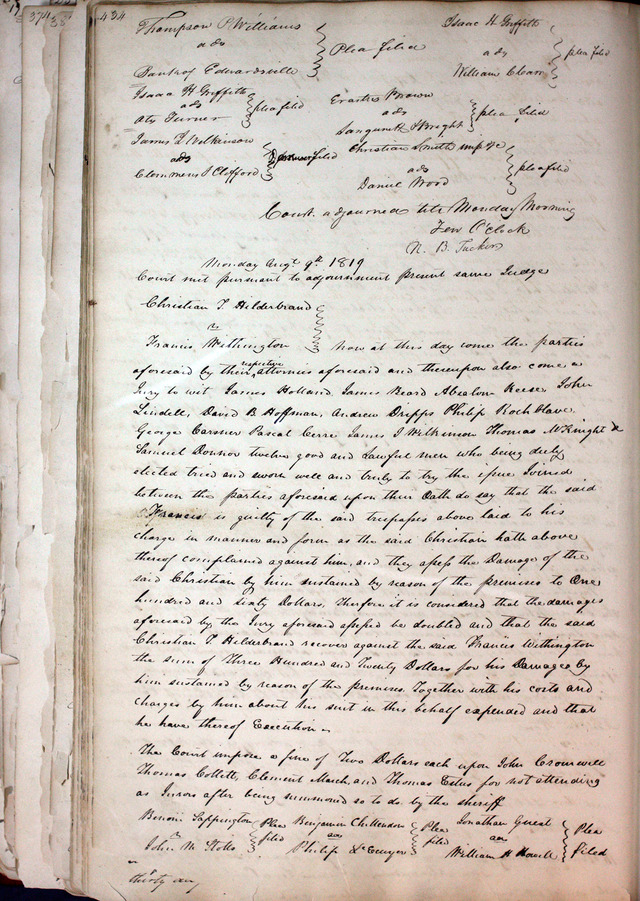 434
Thompson P Williams
ads } Plea filed
Bank of Edwardsville
Isaac H Griffith
ads } plea filed
William Clean
Isaac H Griffith
ads } plea filed
Oty Turner
Erastus Brown
ads } plea filed
Wright
James I Wilkinson
ads } filed
Clemmens & Clifford
Christian Smith imp &c
ads } plea filed
Daniel Wood
Court adjourned till Monday Morning
Ten O'Clock
N. B. Tucker
Monday Augt 9th 1819
Court met pursuant to adjournment present same Judge
Christian T Hilderbrand
vs
Francis Withington } Now at this day come the parties
aforesaid by their respective attornies aforesaid and thereupon also come a
Jury to wit James Holland, James Beard Absalom Keese, John
Lindell, David B Hoffman, Andrew Dripps Philip Rochblave
George Carsner Pascal Cerre James I Wilkinson Thomas McKnight &
Samuel Donnor twelve good and Lawful men who being duly
elected tried and sworn well and truly to try the issue Joined
between the parties aforesaid upon their Oath do say that the said
Francis is guilty of the said trespasses above laid to his
charge in manner and form as the said Christian hath above
thereof complained against him, and they assess the Damage of the
said Christian by him sustained by reason of the premises to One
hundred and sixty Dollars, Therefore it is considered that the damages
aforesaid by the Jury aforesaid assessed be doubled and that the said
Christian T Hilderbrand recover against the said Francis Withington
the sum of Three Hundred and Twenty Dollars for his Damage by
him sustained by reason of the premises. Together with his costs and
charges by him about his suit in this behalf expended and that
he have thereof Execution
The Court impose a fine of Two Dollars each upon John Cromwell
Thomas Collett, Clement March, and Thomas Estes for not attending
as Jurors after being summoned so to do by the sheriff
Benoni Sappington
vs } Plea filed
John M Stotts
Benjamin Chittenden
ads } Plea filed
Philip
Jonathan Guest
ads } Plea filed
William H Howell
thirty one